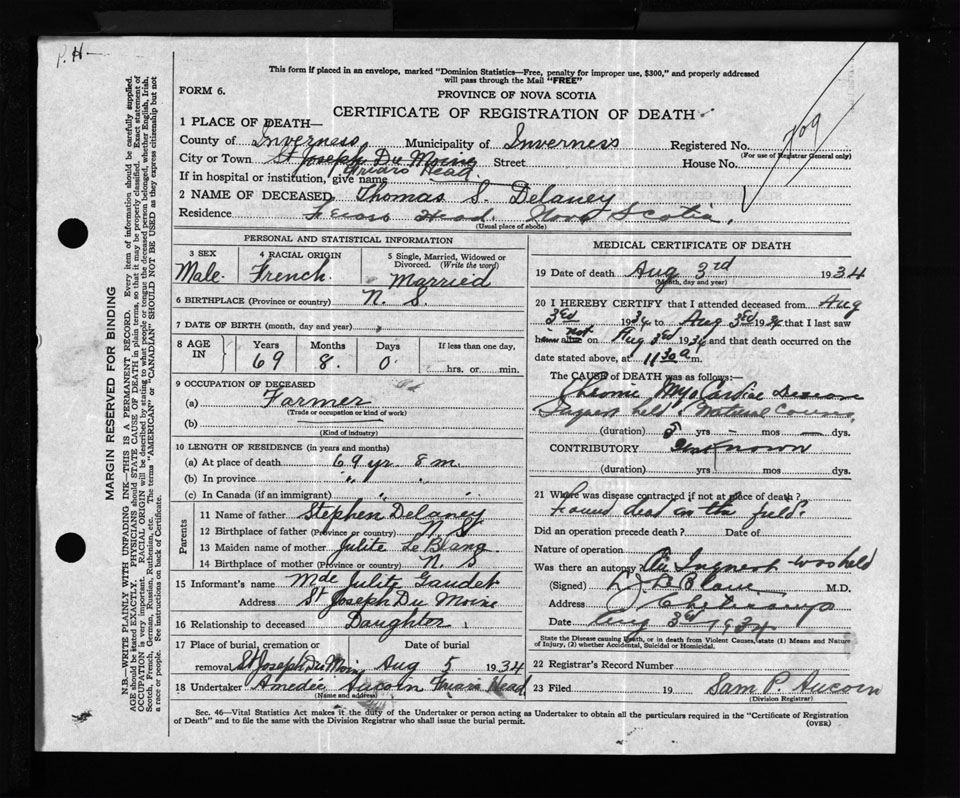 P. H—
This form if placed in an envelope, marked "Dominion Statistics—Free, penalty for improper use, $300," and properly addressed
will pass through the Mail "FREE"
FORM 6.
PROVINCE OF NOVA SCOTIA
CERTIFICATE OF REGISTRATION OF DEATH
709
1 PLACE OF DEATH—
County of Inverness Municipality of Inverness Registered No.
(For use of Registrar General only)
City or Town St Joseph Du Moine Street House No.
If in hospital or institution, give name Friars Head
2 NAME OF DECEASED Thomas S. Delaney
Residence Friars Head. Nova Scotia,
(Usual place of abode)
PERSONAL AND STATISTICAL INFORMATION
3 SEX 4 RACIAL ORIGIN 5 Single, Married, Widowed or
Divorced. (Write the word)
Male. French. Married
6 BIRTHPLACE (Province or country) N. S.
7 DATE OF BIRTH (month, day and year)
8 AGE IN Years Months Days If less than one day,
69 8. 0 hrs. or min.
9 OCCUPATION OF DECEASED
(a) Farmer
(Trade or occupation or kind of work)
(b)
(Kind of industry)
10 LENGTH OF RESIDENCE (in years and months)
(a) At place of death 69 yr. 8 m.
(b) In province " "
(c) In Canada (if an immigrant) " "
Parents
11 Name of father Stephen Delaney
12 Birthplace of father (Province or country) N. S
13 Maiden name of mother Julite Le Blanc
14 Birthplace of mother (Province or country) N. S
15 Informant's name Mde Julite Gaudet
Address St Joseph Du Moine
16 Relationship to deceased Daughter
17 Place of burial, cremation or Date of burial
removal St Joseph Du Moine Aug 5 1934
18 Undertaker Amedée Aucoin Friars Head
(Name and address)
MEDICAL CERTIFICATE OF DEATH
19 Date of death Aug 3rd 1934
(Month, day and year)
20 I HEREBY CERTIFY that I attended deceased from Aug
3rd 1934 to Aug 3rd 1934 that I last saw
h alive not on Aug 3rd 1934 and that death occurred on the
date stated above, at 11 30 a m.
The CAUSE of DEATH was as follows:—
Chronic Myocardiac Disease
Inquest held Natural Causes
(duration) 5 yrs — mos — dys.
CONTRIBUTORY Unknown
(duration) yrs mos dys.
21 Where was disease contracted if not at place of death?
Found dead in the field.
Did an operation precede death? Date of
Nature of operation
Was there an autopsy? An Inquest was held
(Signed) M.D.
Address Cheticamp
Date Aug 3rd 1934
State the Disease causing Death, or in death from Violent Causes, state (1) Means and Nature
of Injury, (2) whether Accidental, Suicidal or Homicidal.
22 Registrar's Record Number
23 Filed 19 Sam P. Aucoin
(Division Registrar)
Sec. 46—Vital Statistics Act makes it the duty of the Undertaker or person acting as Undertaker to obtain all the particulars required in the "Certificate of Registration
of Death" and to file the same with the Division Registrar who shall issue the burial permit.
(OVER)
MARGIN RESERVED FOR BINDING
N.B.—WRITE PLAINLY WITH UNFADING INK—THIS IS A PERMANENT RECORD. Every item of information should be carefully supplied.
AGE should be stated EXACTLY. PHYSICIANS should STATE CAUSE OF DEATH in plain terms, so that it may be properly classified. Exact statement of
OCCUPATION is very important. RACIAL ORIGIN will be described by stating to what people or tongue the deceased person belonged, whether English, Irish,
Scotch, French, German, Russian, Ruthenian, etc. The terms "AMERICAN" or "CANADIAN" SHOULD NOT BE USED as they express citizenship but not
a race or people. See instructions on back of Certificate.